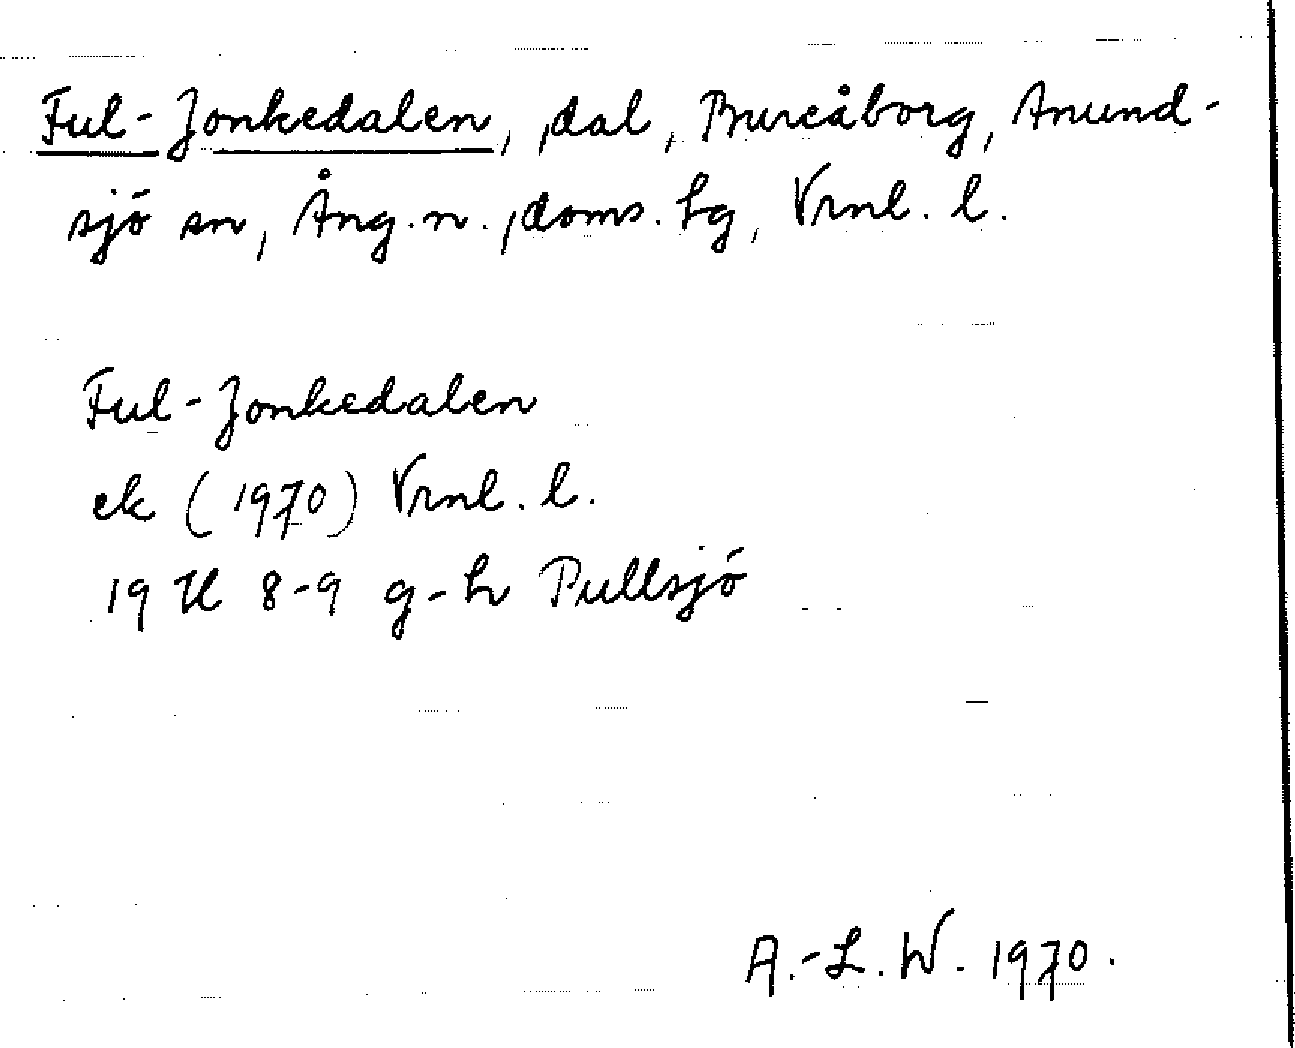 Ful-Jonkedalen, dal, Bureåborg, Anund-
sjö sn, Ång.n., doms. hg, Vrnl. l.
Ful-Jonkedalen
ek (1970) Vrnl. l.
19 H 8-9 g-h Pullsjö
A.-L. W. 1970.